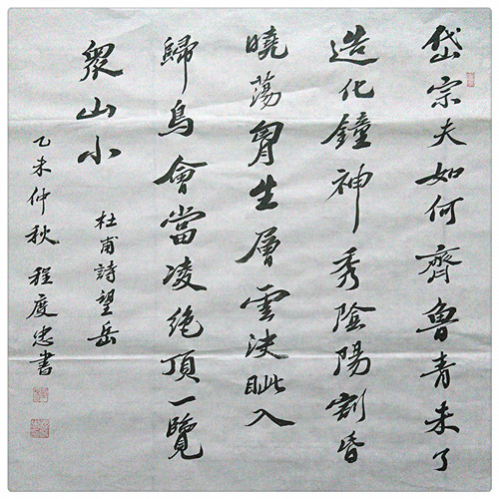 岱宗夫如何齊魯青未了
造化鐘神秀陰陽割昏
曉蕩胷生層雲決眦入
歸鳥會當凌絕頂一覽
眾山小
杜甫詩望岳
乙未仲秋 程度忠書